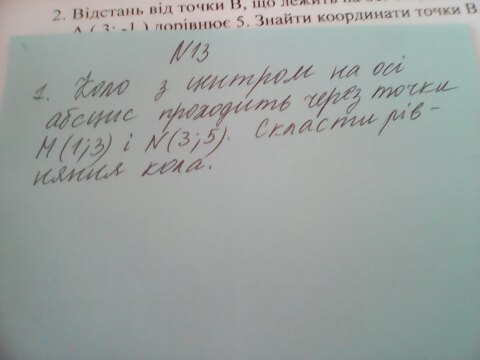 2. Відстань від точки В, що лежить на
А ( 3; -1 ) дорівнює 5. Знайти координати точки В
N13
1. Коло з центром на осі
абсцис проходить через точки
M(1;3) і N(3;5). Скласти рів-
няння кола.